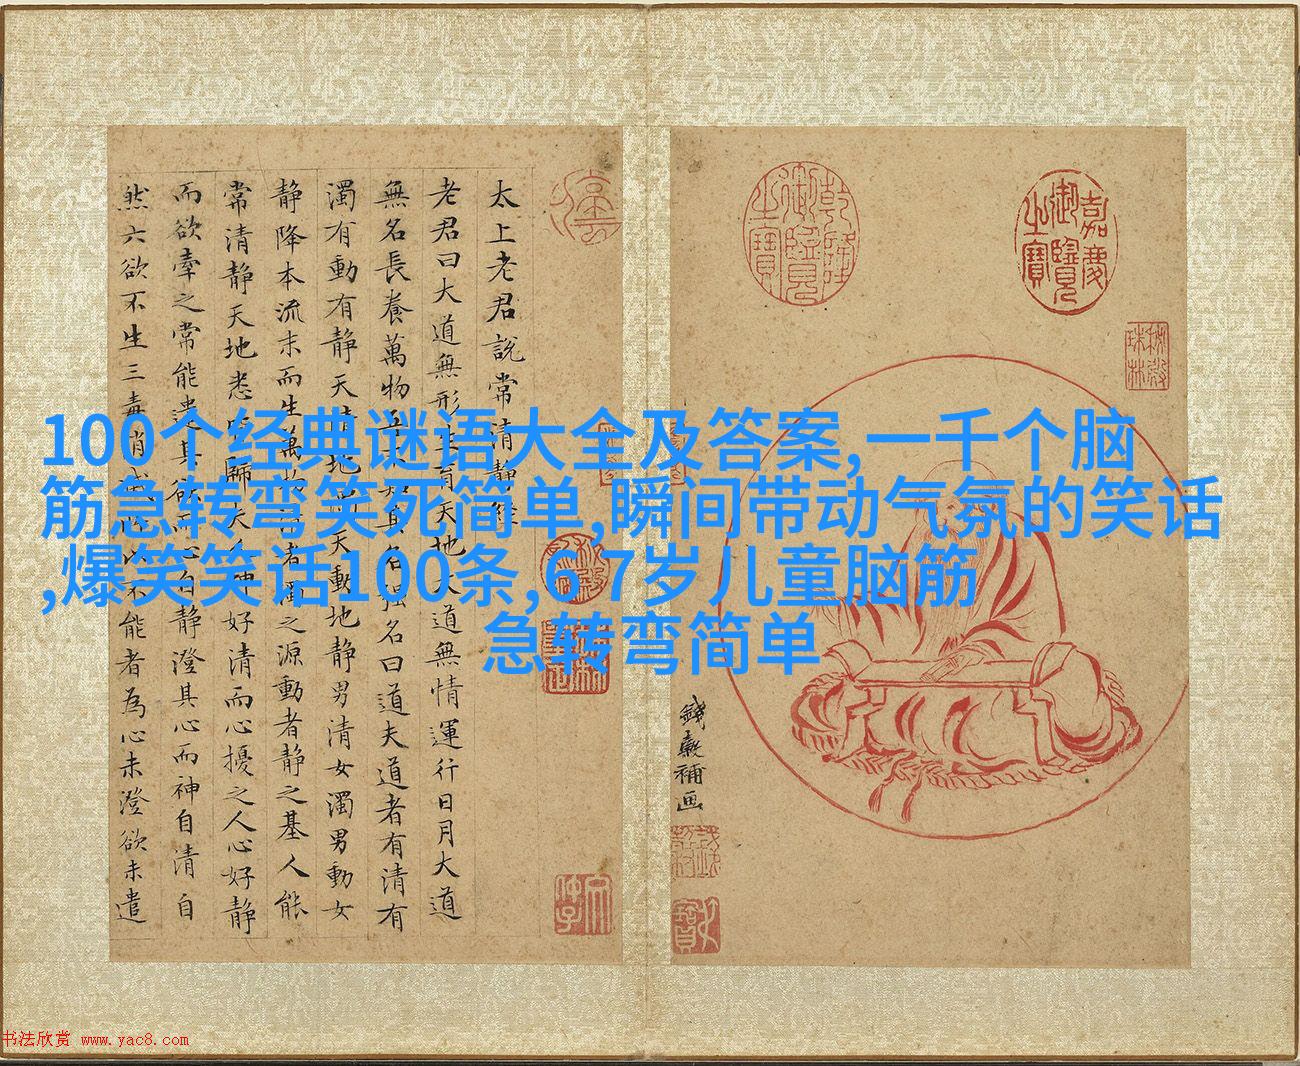 100个经典谜语大全及答案,一千个脑
筋急转弯笑死简单,瞬间带动气氛的笑话
,爆笑笑话100条,6-7岁儿童脑筋
急转弯简单
嘉慶御覽之寶
乾隆御覽之寶
秘殿珠林
錢穀補画
太上老君說常清靜經
老君曰大道無形生育天地大道無情運行日月大道
無名長養萬物吾不知其名强名曰道夫道者有清有
濁有動有静天清地濁天動地静男清女濁男動女
静降本流末而生萬物清者濁之源動者静之基人能
常清静天地悉皆歸夫人神好清而心擾之人心好静
而欲牽之常能遣其欲而心自静澄其心而神自清自
然六欲不生三毒消滅所以不能者為心未澄欲未遣
书法欣赏 www.yac8.com